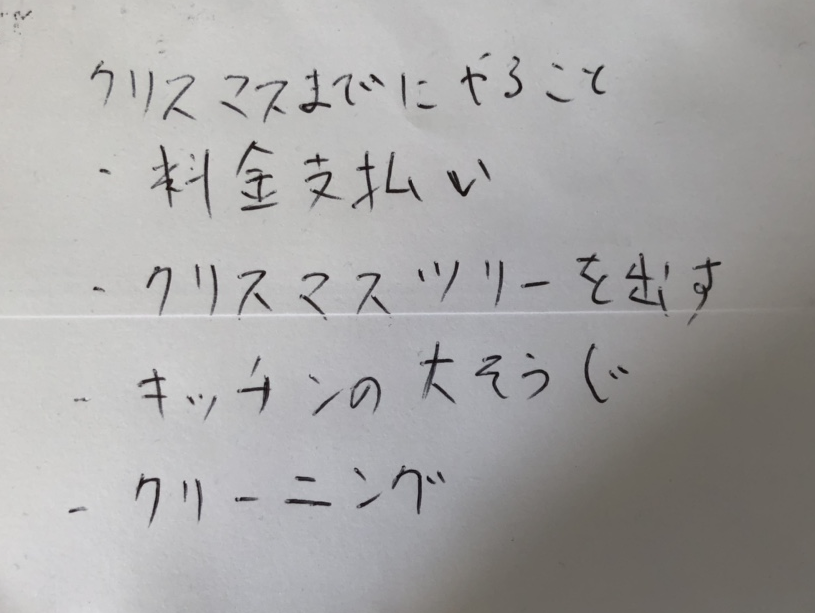 クリスマスまでにやること
・料金支払い
・クリスマスツリーを出す
・キッチンの大そうじ
・クリーニング